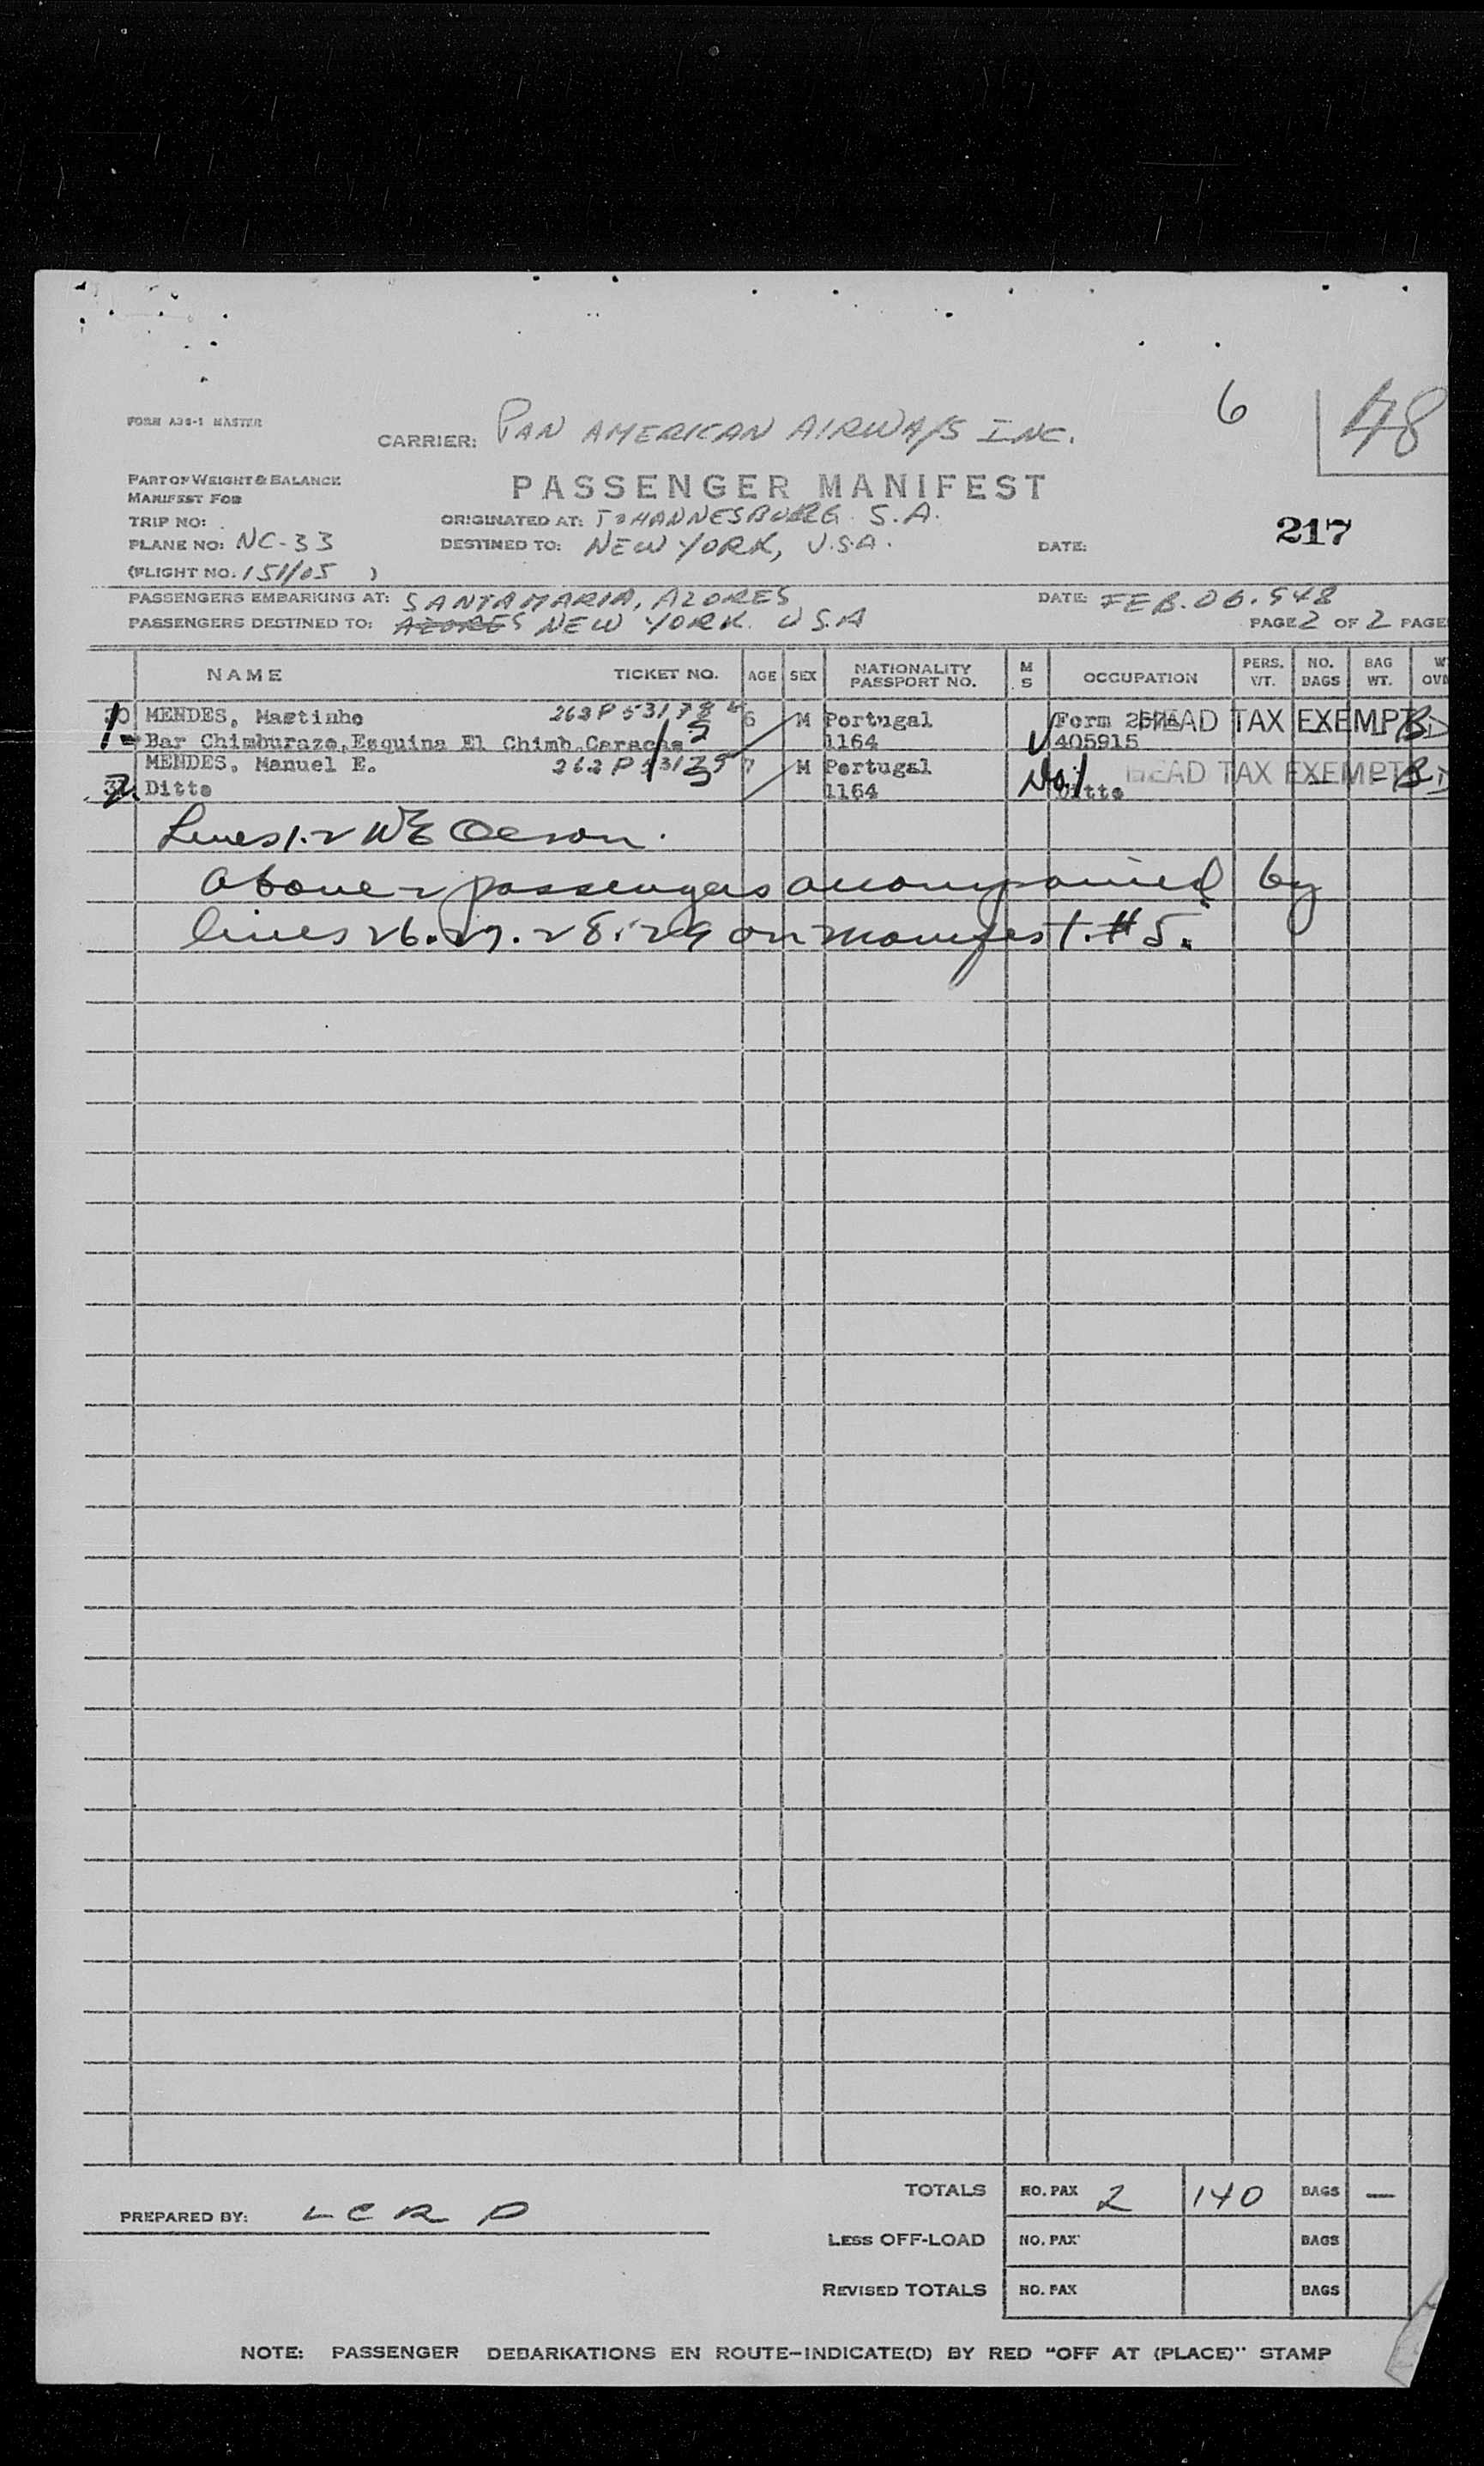 6
48
FORM A36-1 MASTER
CARRIER: PAN AMERICAN AIRWAYS INC.
PART OF WEIGHT & BALANCE
MANIFEST FOR
PASSENGER MANIFEST
TRIP NO:
ORIGINATED AT: JOHANNESBURG. S.A.
217
PLANE NO: NC-33
DESTINED TO: NEW YORK, U.S.A.
DATE:
(FLIGHT NO: 151/05 )
PASSENGERS EMBARKING AT: SANTA MARIA, AZORES
DATE: FEB. 06. 948
PASSENGERS DESTINED TO: AZORES NEW YORK. U S.A
PAGE 2 OF 2 PAGE
NAME TICKET NO. AGE SEX NATIONALITY PASSPORT NO. M S OCCUPATION PERS. WT. NO. BAGS BAG WT.
1. MENDES, Mastinho 6 M Portugal Form HEAD TAX EXEMPT
Bar Chimburazo, Esquina El Chimb. Caracas 1164 405915
MENDES, Manuel E. 7 M Portugal HEAD TAX EXEMPT
2. Ditto 1164 Ditto
Lines 1.2 WE Olson.
Above 2 passengers accompanied by
lines 26. 27. 28. 29 on manifest. #5.
TOTALS NO. PAX 2 140 BAGS —
PREPARED BY: LCRD
LESS OFF-LOAD NO. PAX BAGS
REVISED TOTALS NO. PAX BAGS
NOTE: PASSENGER DEBARKATIONS EN ROUTE—INDICATE(D) BY RED "OFF AT (PLACE)" STAMP